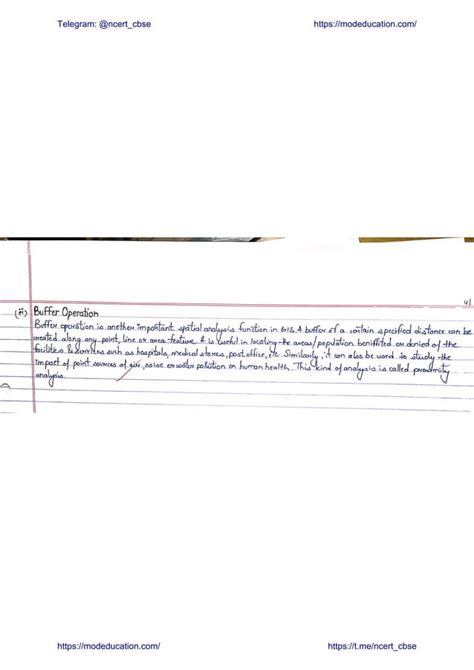 Telegram: @ncert_cbse https://modeducation.com/
41
(ii) Buffer Operation
Buffer operation is another important spatial analysis function in GIS. A buffer of a certain specified distance can be
created along any point, line or area feature. It is useful in locating the areas/population benifitted or denied of the
facilities & services such as hospitals, medical stores, post office, etc. Similarly, it can also be used to study the
impact of point sources of air, noise or water pollution on human health. This kind of analysis is called proximity
analysis.
https://modeducation.com/ https://t.me/ncert_cbse